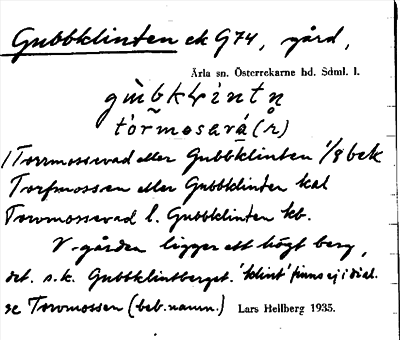 Gubbklinten ek G74, gård,
Ärla sn. Österrekarne hd. Sdml. l.
gùbkḷintn
tòrmosará(r)
1 Torrmossvad eller Gubbklinten 1/8 bek
Torfmossen eller Gubbklinten kal
Torvmossevad l. Gubbklinten kb.
V gården ligger ett högt berg,
det s.k. Gubbklintberget. 'klint' finns ej i dial.
se Torvmossen (beb.namn.) Lars Hellberg 1935.